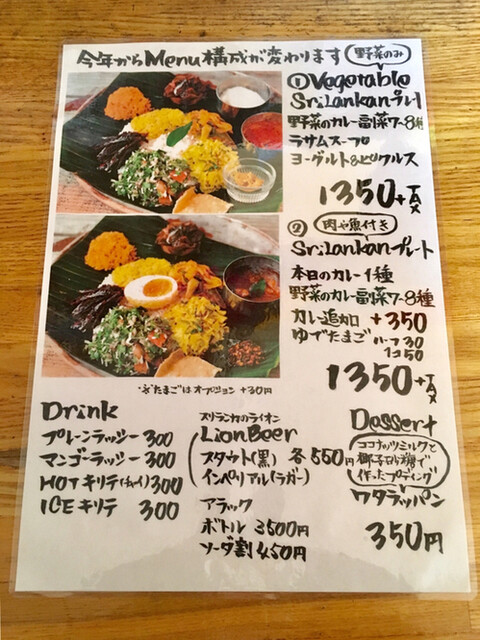 今年からMenu構成が変わります
野菜のみ
① Vegetable
Sri Lankanプレート
野菜のカレー副菜7~8種
ラサムスープ
ヨーグルト&ピクルス
1350+TAX
② 肉や魚付き
Sri Lankanプレート
本日のカレー1種
野菜のカレー副菜7~8種
カレー追加 +350
ゆでたまご ハーフ30
1コ50
1350+TAX
"ゆでたまご"はオプション +30円
Drink
プレーンラッシー 300
マンゴーラッシー 300
HOTキリテ(チャイ) 300
ICEキリテ 300
スリランカのライオン
Lion Beer
スタウト(黒) 各550円
インペリアル(ラガー)
アラック
ボトル 3500円
ソーダ割 450円
Dessert
ココナッツミルクと
椰子砂糖で
作ったプディング
ワタラッパン
350円